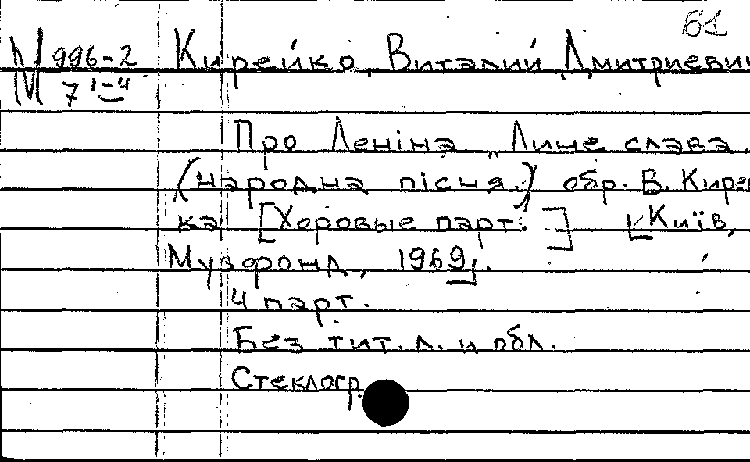 61
М 996-2 Кирейко, Виталий Дмитриевич
7 1-4
Про Леніна „Лине слава.
(народна пісня.) обр. В. Кирей
ка [Хоровые парт.] [Київ,
Музфонд, 1969].
4 парт.
Без тит. л. и обл.
Стеклогр.